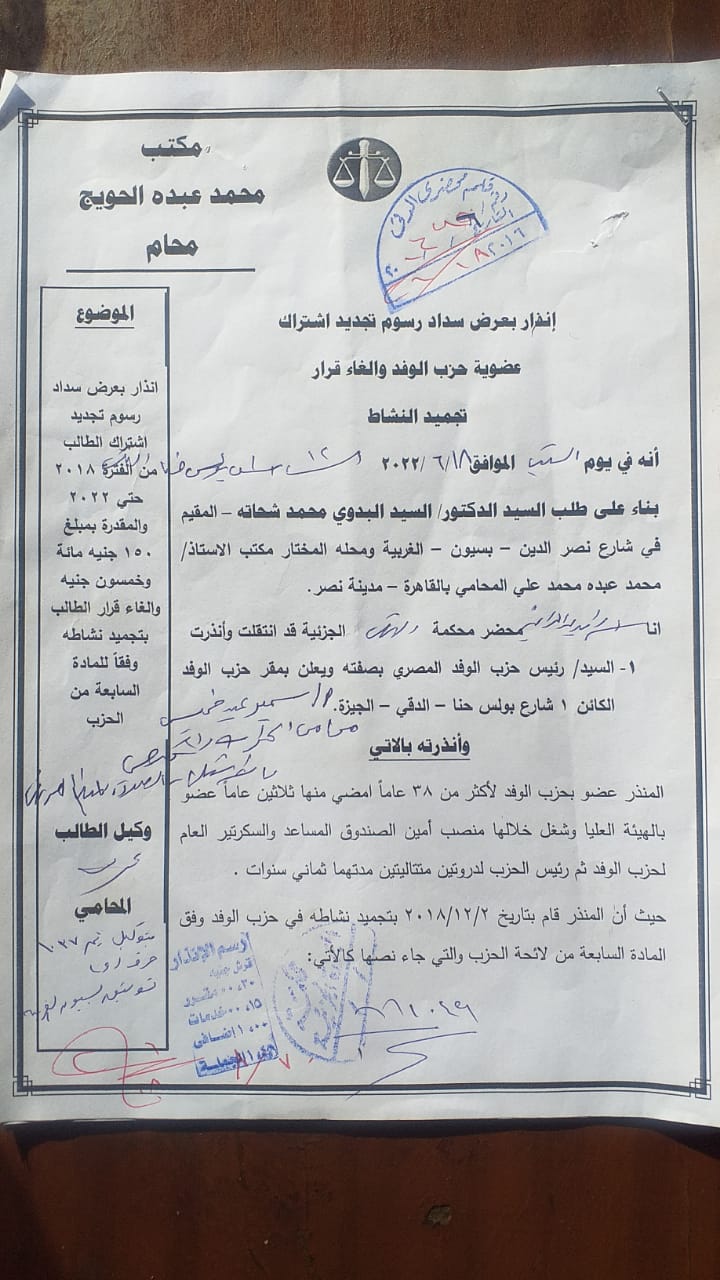 مكتب
محمد عبده الحويج
محام
إنذار بعرض سداد رسوم تجديد اشتراك
عضوية حزب الوفد والغاء قرار
تجميد النشاط
أنه في يوم السبت الموافق ٢٠٢٢/٦/١٨
بناء على طلب السيد الدكتور/ السيد البدوي محمد شحاته – المقيم
في شارع نصر الدين – بسيون – الغربية ومحله المختار مكتب الاستاذ/
محمد عبده محمد علي المحامي بالقاهرة – مدينة نصر.
انا محضر محكمة الجزئية قد انتقلت وأنذرت
١- السيد/ رئيس حزب الوفد المصري بصفته ويعلن بمقر حزب الوفد
الكائن ١ شارع بولس حنا – الدقي – الجيزة.
وأنذرته بالاتي
المنذر عضو بحزب الوفد لأكثر من ٣٨ عاماً امضي منها ثلاثين عاماً عضو
بالهيئة العليا وشغل خلالها منصب أمين الصندوق المساعد والسكرتير العام
لحزب الوفد ثم رئيس الحزب لدروتين متتاليتين مدتهما ثماني سنوات .
حيث أن المنذر قام بتاريخ ٢٠١٨/١٢/٢ بتجميد نشاطه في حزب الوفد وفق
المادة السابعة من لائحة الحزب والتي جاء نصها كالأتي:
الموضوع
انذار بعرض سداد
رسوم تجديد
اشتراك الطالب
من الفترة ٢٠١٨
حتي ٢٠٢٢
والمقدرة بمبلغ
١٥٠ جنيه مائة
وخمسون جنيه
والغاء قرار الطالب
بتجميد نشاطه
وفقاً للمادة
السابعة من
الحزب
وكيل الطالب
المحامي
رسم الإنذار